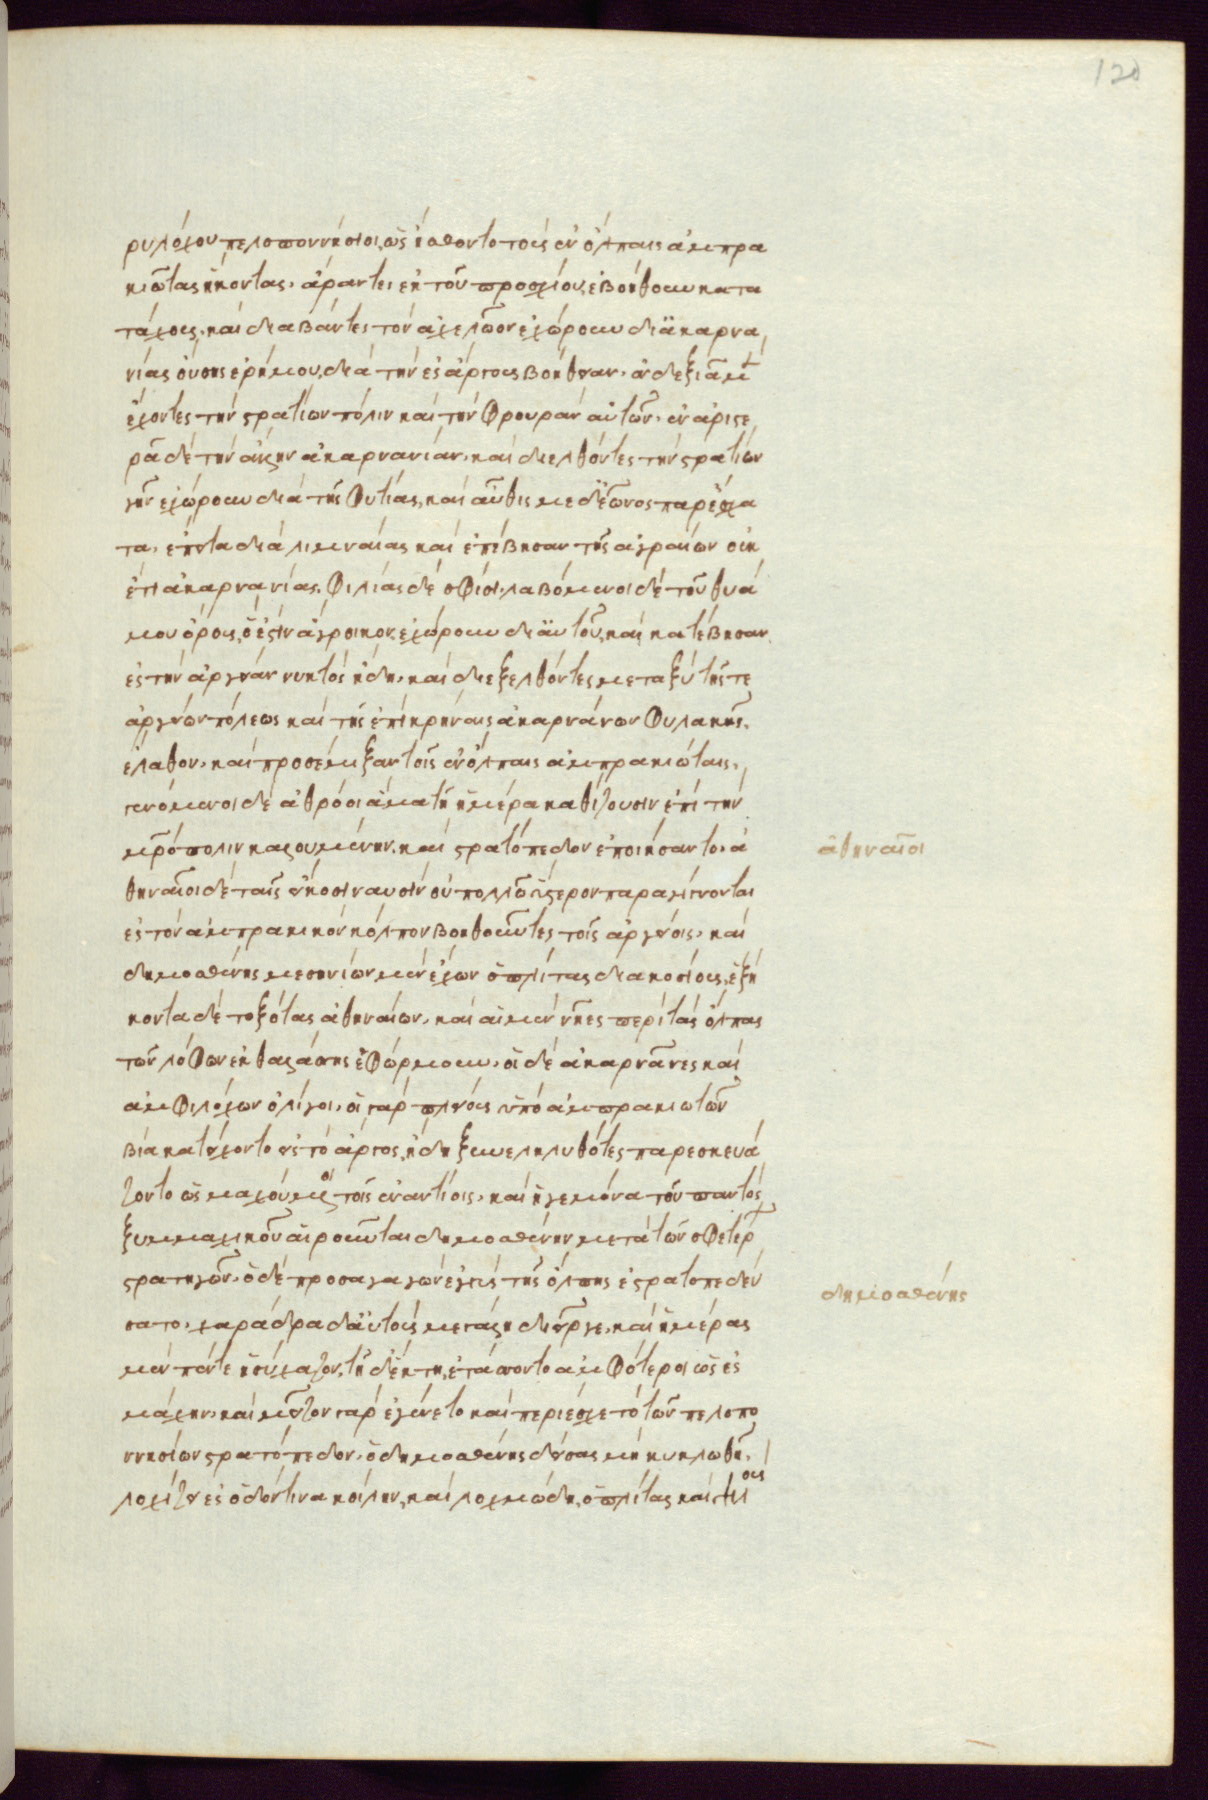 120
ρυλόχου πελοποννήσιοι, ὡς ἤσθοντο τοὺς ἐν ὄλπαις ἀμπρα
κιώτας ἥκοντας. ἄραντες ἐκ τοῦ προσχίου, ἐβοήθουν κατα
τάχους. καὶ διαβάντες τὸν ἀχελῶον ἐχώρουν δι' ἀκαρνα
νίας οὔσης ἐρήμου, διὰ τὴν ἐς ἄργος βοήθειαν. ἐν δεξιᾷ μὲν
ἔχοντες τὴν στρατίων πόλιν καὶ τὴν φρουρὰν αὐτῶν. ἐν ἀριστε
ρᾷ δὲ τὴν ἄλλην ἀκαρνανίαν. καὶ διελθόντες τὴν στρατίων
γῆν ἐχώρουν διὰ τῆς φυτίας, καὶ αὖθις μεδεῶνος παρ' ἔσχα
τα. ἔπειτα διὰ λιμναίας καὶ ἐπέβησαν τῆς ἀγραίων οὐκ
έτι ἀκαρνανίας. φιλίας δὲ σφίσι. λαβόμενοι δὲ τοῦ θυά
μου ὄρους, ὅ ἐστιν ἀγροικον, ἐχώρουν δι' αὐτοῦ, καὶ κατέβησαν
ἐς τὴν ἀργείαν νυκτὸς ἤδη. καὶ διεξελθόντες μεταξὺ τῆς τε
ἀργείων πόλεως καὶ τῆς ἐπὶ κρήναις ἀκαρνάνων φυλακῆς.
ἔλαθον. καὶ προσέμιξαν τοῖς ἐν ὄλπαις ἀμπρακιώταις.
γενόμενοι δὲ ἀθρόοι ἅμα τῇ ἡμέρα καθίζουσιν ἐπὶ τὴν
μητρόπολιν καλουμένην. καὶ στρατόπεδον ἐποιήσαντο. ἀ
θηναῖοι δὲ ταῖς εἴκοσι ναυσὶν οὐ πολλῷ ὕστερον παραγίγνονται
ἐς τὸν ἀμπρακικὸν κόλπον βοηθοῦντες τοῖς ἀργείοις. καὶ
δημοσθένης μεσηνίων μὲν ἔχων ὁπλίτας διακοσίους, ἑξή
κοντα δὲ τοξότας ἀθηναίων. καὶ αἱ μὲν νῆες περὶ τὰς ὄλπας
τῶν λόφων ἐκ θαλάσσης ἐφώρμουν. οἱ δὲ ἀκαρνᾶνες καὶ
ἀμφιλόχων ὀλίγοι. οἱ γὰρ πλείους ὑπὸ ἀμπρακιωτῶν
βίᾳ κατείχοντο εἰς τὸ ἄργος, ἤδη ξυνεληλυθότες παρεσκευά
ζοντο ὡς μαχούμενοι τοῖς ἐναντίοις. καὶ ἡγεμόνα τοῦ παντὸς
ξυμμαχικοῦ αἱροῦνται δημοσθένην μετὰ τῶν σφετέρων
στρατηγῶν. ὁ δὲ προσαγαγὼν ἐγγὺς τῆς ὄλπης ἐστρατοπεδεύ
σατο. χαράδρα δ' αὐτοὺς μεγάλη διεῖργε. καὶ ἡμέρας
μὲν πέντε ἡσύχαζον, τῇ δ' ἕκτῃ, ἐτάσσοντο ἀμφότεροι ὡς ἐς
μάχην. καὶ μεῖζον γὰρ ἐγένετο καὶ περιέσχε τὸ τῶν πελοπο
ννησίων στρατόπεδον. ὁ δημοσθένης δείσας μὴ κυκλωθῇ.
λοχίζει ἐς ὁδόν τινα κοίλην, καὶ λοχμώδη, ὁπλίτας καὶ ψιλοὺς
ἀθηναῖοι
δημοσθένης